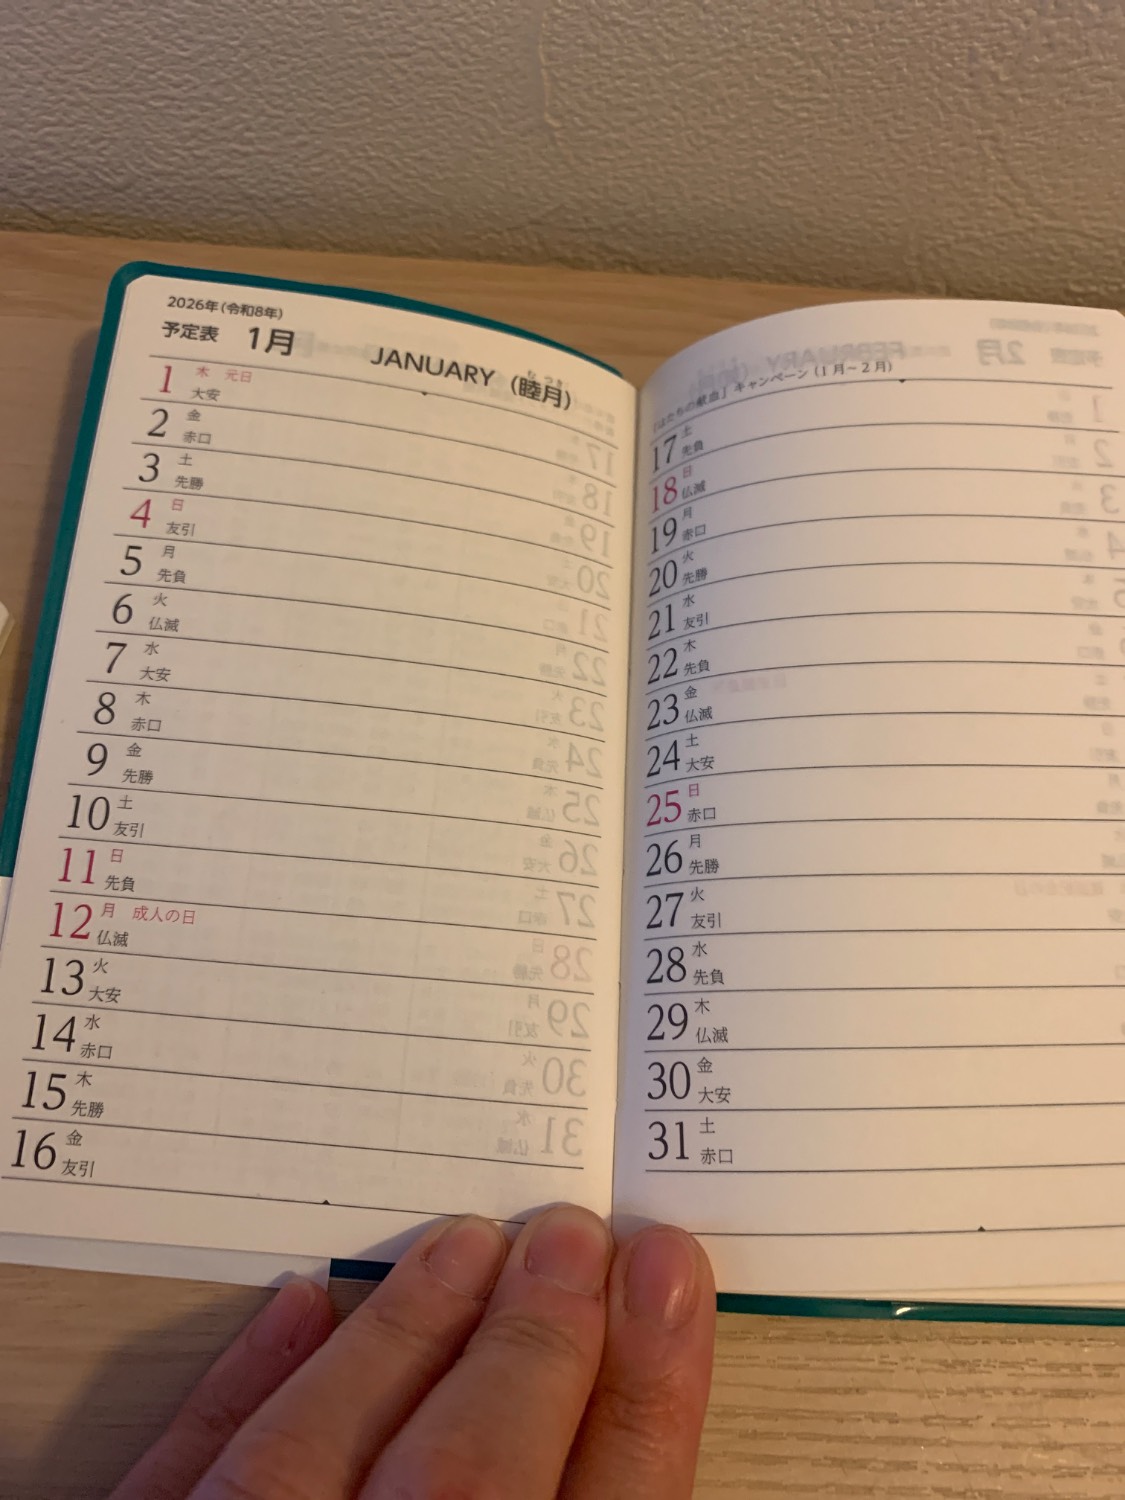 2026年(令和8年)
予定表 1月 JANUARY (睦月)
むつき
1 木 元日
大安
2 金
赤口
3 土
先勝
4 日
友引
5 月
先負
6 火
仏滅
7 水
大安
8 木
赤口
9 金
先勝
10 土
友引
11 日
先負
12 月 成人の日
仏滅
13 火
大安
14 水
赤口
15 木
先勝
16 金
友引
「はたちの献血」キャンペーン(1月~2月)
17 土
先負
18 日
仏滅
19 月
赤口
20 火
先勝
21 水
友引
22 木
先負
23 金
仏滅
24 土
大安
25 日
赤口
26 月
先勝
27 火
友引
28 水
先負
29 木
仏滅
30 金
大安
31 土
赤口